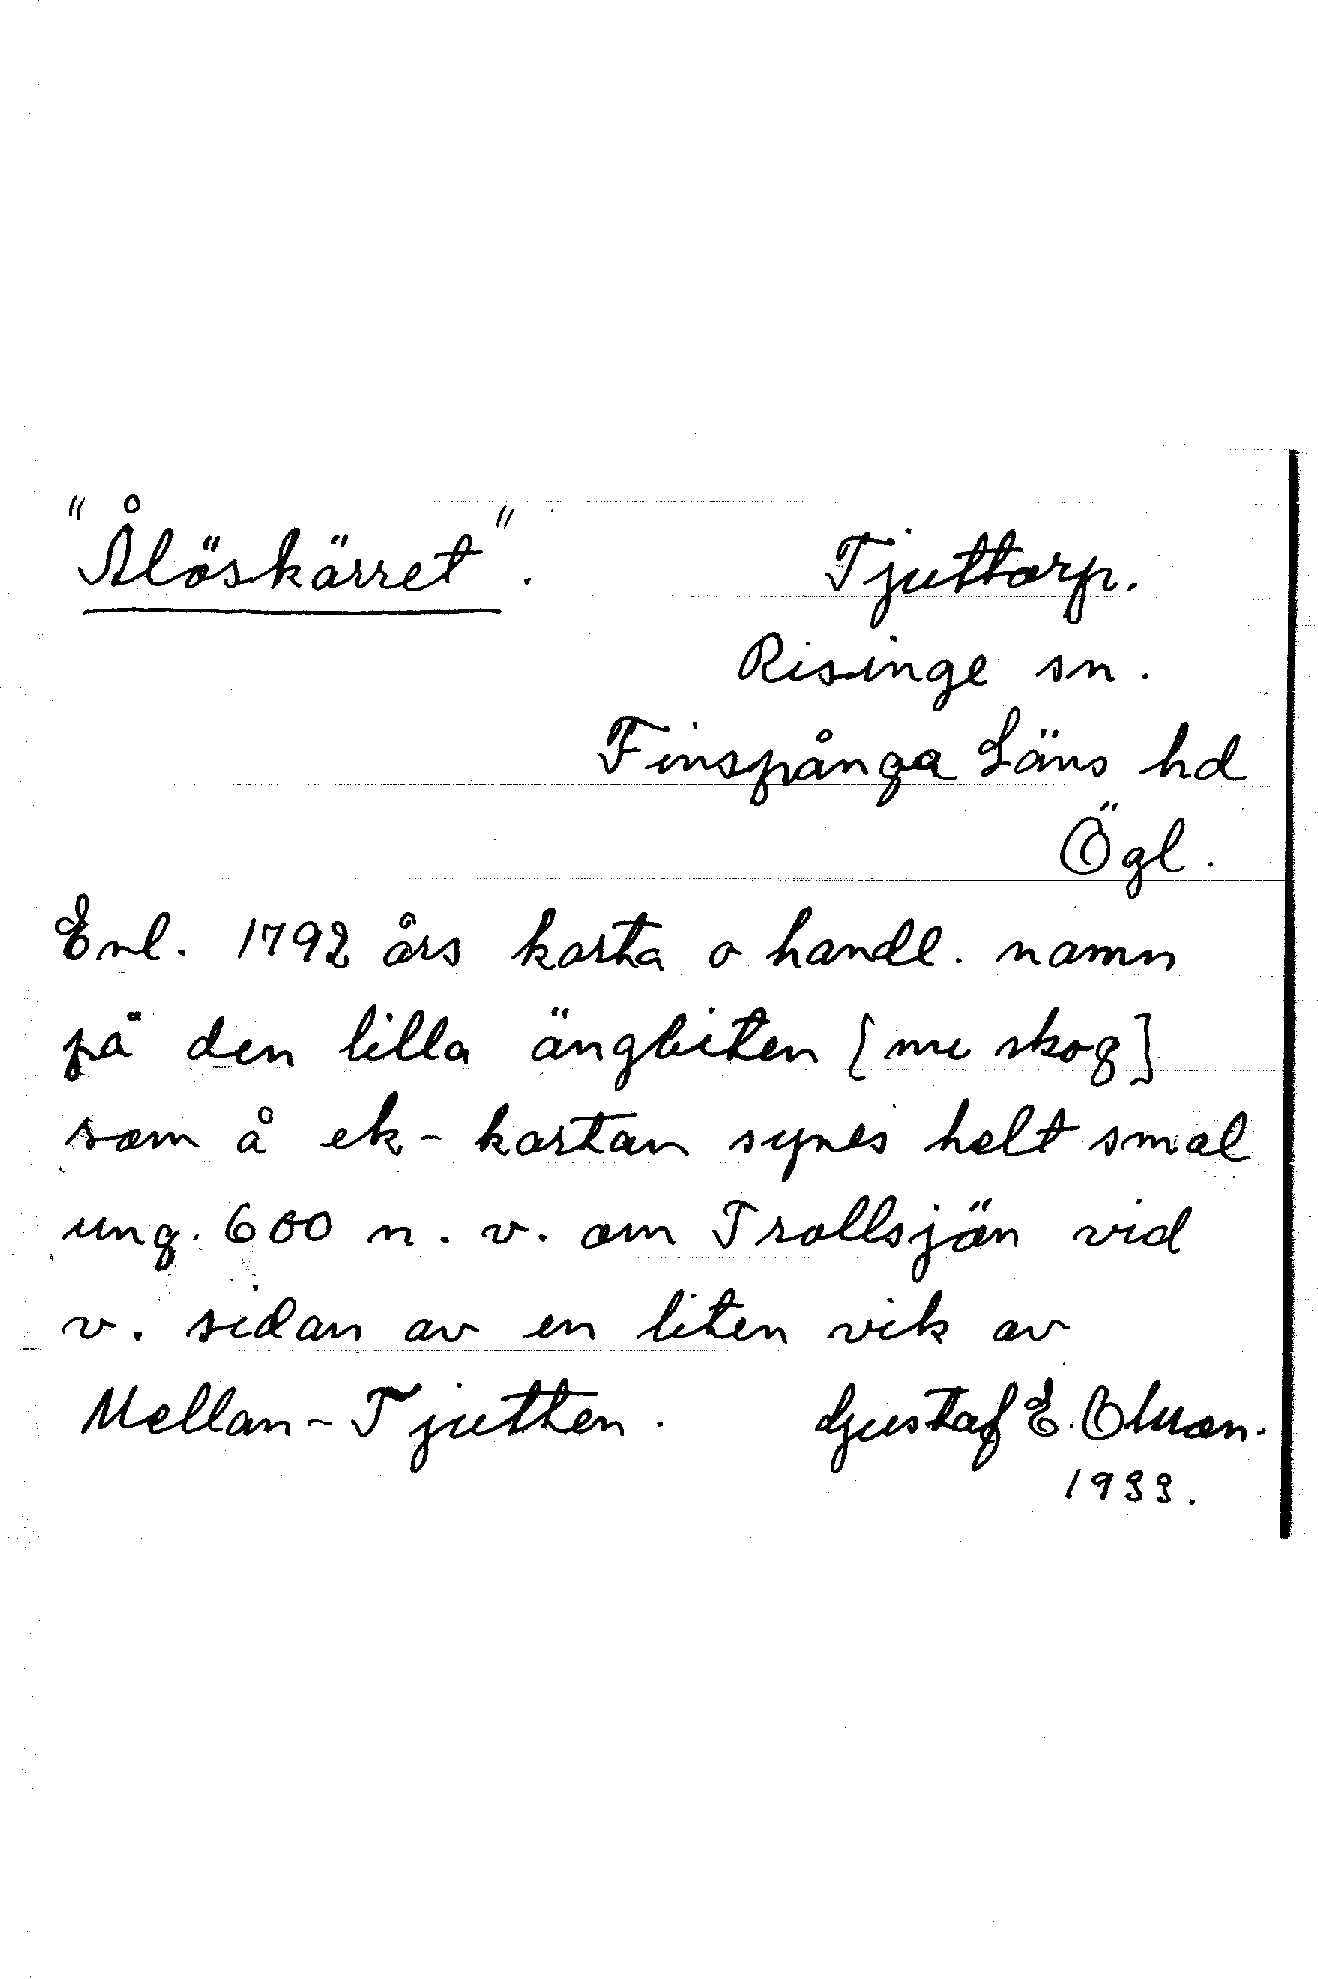 "Ålöskärret". Tjuttorp.
Risinge sn.
Finspånga Läns hd
Ögl.
Enl. 1792 års karta o handl. namn
på den lilla ängbiten [nu skog]
som å ek-kartan synes helt smal
ung. 600 n. v. om Trollsjön vid
v. sidan av en liten vik av
Mellan-Tjutten. Gustaf E. Olsson.
1933.